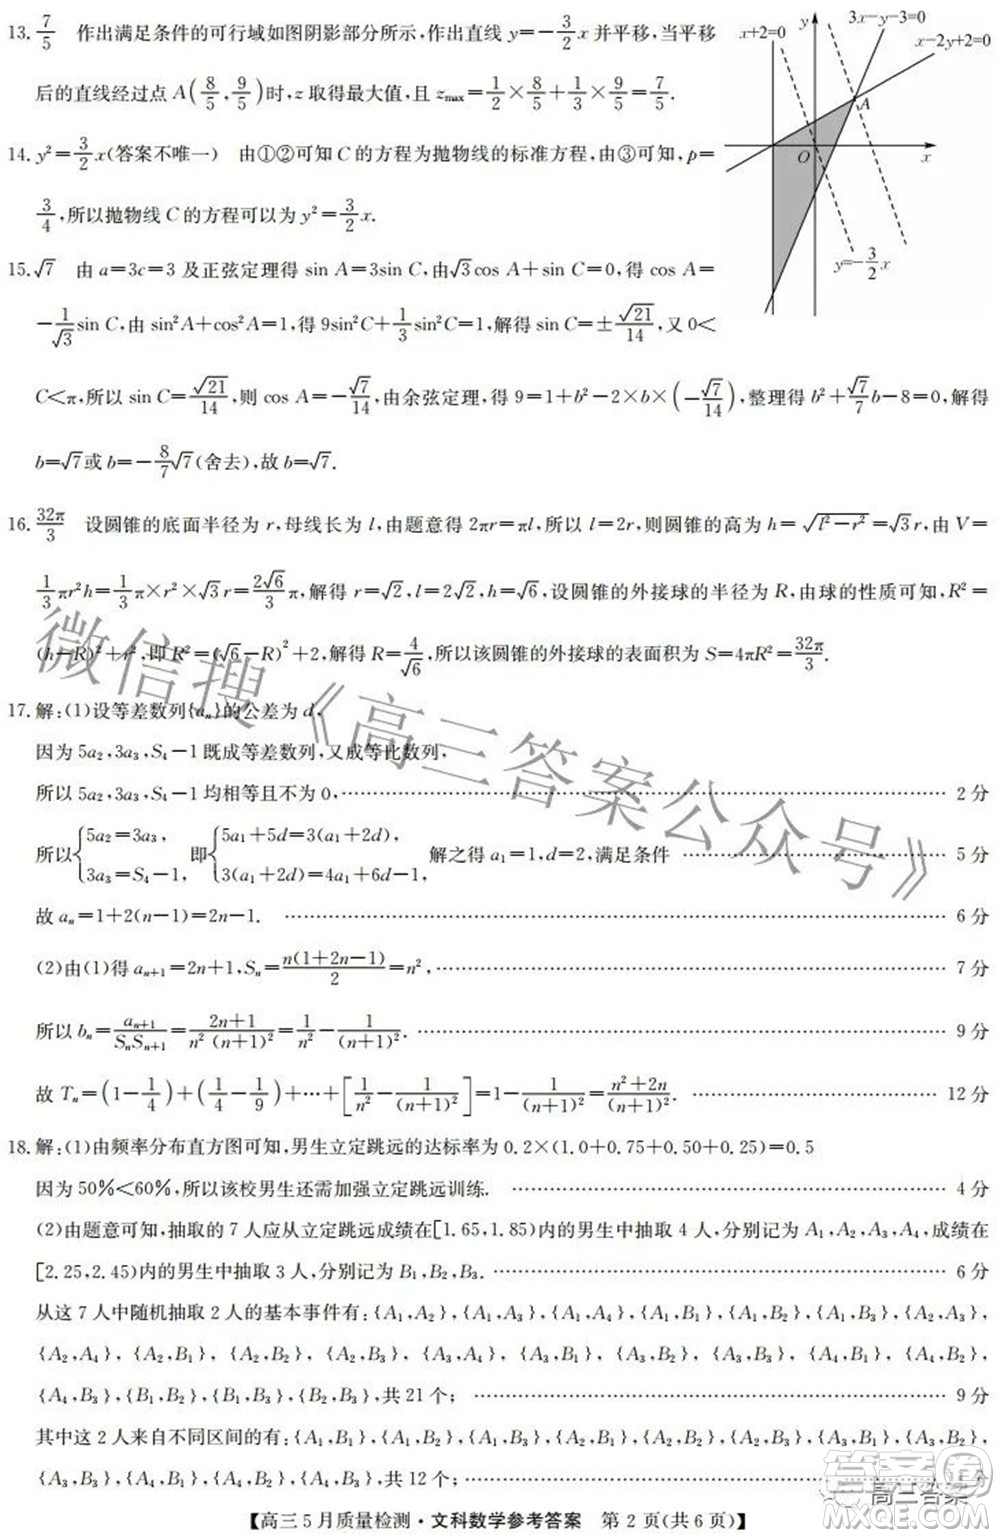 13. 7/5　作出满足条件的可行域如图阴影部分所示,作出直线 y=−3/2 x 并平移,当平移
后的直线经过点 A(8/5,9/5)时,z 取得最大值,且 zmax=1/2×8/5+1/3×9/5=7/5.
x+2=0
y
3x−y−3=0
x−2y+2=0
A
O
x
y=−3/2 x
14. y²=3/2 x(答案不唯一)　由①②可知 C 的方程为抛物线的标准方程,由③可知,p=
3/4,所以抛物线 C 的方程可以为 y²=3/2 x.
15. √7　由 a=3c=3 及正弦定理得 sin A=3sin C,由√3cos A+sin C=0,得 cos A=
−1/√3 sin C,由 sin²A+cos²A=1,得 9sin²C+1/3 sin²C=1,解得 sin C=±√21/14,又 0<
C<π,所以 sin C=√21/14,则 cos A=−√7/14,由余弦定理,得 9=1+b²−2×b×(−√7/14),整理得 b²+√7/7 b−8=0,解得
b=√7或 b=−8/7√7(舍去),故 b=√7.
16. 32π/3　设圆锥的底面半径为 r,母线长为 l,由题意得 2πr=πl,所以 l=2r,则圆锥的高为 h=√(l²−r²)=√3 r,由 V=
1/3 πr²h=1/3 π×r²×√3 r=2√6/3 π,解得 r=√2,l=2√2,h=√6,设圆锥的外接球的半径为 R,由球的性质可知,R²=
(h−R)²+r²,即 R²=(√6−R)²+2,解得 R=4/√6,所以该圆锥的外接球的表面积为 S=4πR²=32π/3.
17. 解:(1)设等差数列{aₙ}的公差为 d,
因为 5a₂,3a₃,S₄−1 既成等差数列,又成等比数列,
所以 5a₂,3a₃,S₄−1 均相等且不为 0, …… 2 分
所以{5a₂=3a₃, 3a₃=S₄−1, 即{5a₁+5d=3(a₁+2d), 3(a₁+2d)=4a₁+6d−1, 解之得 a₁=1,d=2,满足条件 …… 5 分
故 aₙ=1+2(n−1)=2n−1. …… 6 分
(2)由(1)得 aₙ₊₁=2n+1,Sₙ=n(1+2n−1)/2=n², …… 7 分
所以 bₙ=aₙ₊₁/(SₙSₙ₊₁)=(2n+1)/(n²(n+1)²)=1/n²−1/(n+1)². …… 9 分
故 Tₙ=(1−1/4)+(1/4−1/9)+…+[1/n²−1/(n+1)²]=1−1/(n+1)²=(n²+2n)/(n+1)². …… 12 分
18. 解:(1)由频率分布直方图可知,男生立定跳远的达标率为 0.2×(1.0+0.75+0.50+0.25)=0.5
因为 50%<60%,所以该校男生还需加强立定跳远训练. …… 4 分
(2)由题意可知,抽取的 7 人应从立定跳远成绩在[1.65,1.85)内的男生中抽取 4 人,分别记为 A₁,A₂,A₃,A₄,成绩在
[2.25,2.45)内的男生中抽取 3 人,分别记为 B₁,B₂,B₃. …… 6 分
从这 7 人中随机抽取 2 人的基本事件有:{A₁,A₂},{A₁,A₃},{A₁,A₄},{A₁,B₁},{A₁,B₂},{A₁,B₃},{A₂,A₃},
{A₂,A₄},{A₂,B₁},{A₂,B₂},{A₂,B₃},{A₃,A₄},{A₃,B₁},{A₃,B₂},{A₃,B₃},{A₄,B₁},{A₄,B₂},
{A₄,B₃},{B₁,B₂},{B₁,B₃},{B₂,B₃},共 21 个; …… 9 分
其中这 2 人来自不同区间的有:{A₁,B₁},{A₁,B₂},{A₁,B₃},{A₂,B₁},{A₂,B₂},{A₂,B₃},{A₃,B₁},{A₃,B₂},
{A₃,B₃},{A₄,B₁},{A₄,B₂},{A₄,B₃},共 12 个; ……
【高三 5 月质量检测·文科数学参考答案　第 2 页(共 6 页)】
微信搜《高三答案公众号》
高三答案
答案圈
MXQE.COM